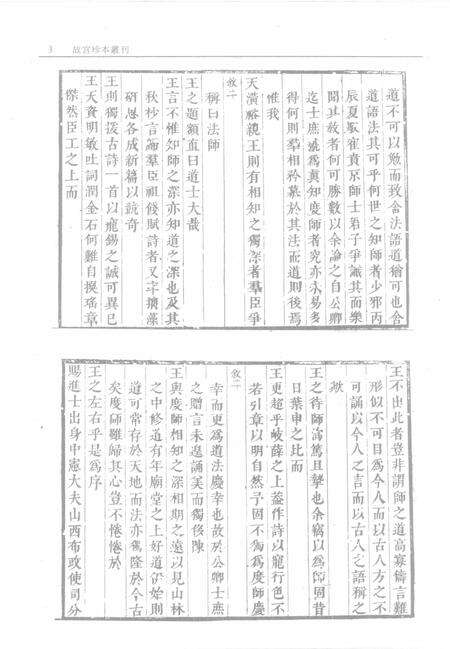 3 故宫珍本叢刊
道不可以勉而致舍法語道猶可也舍
道語法其可乎何世之知師者少邪丙
辰夏馭寉賁京師士君子爭識其面樂
聞其教者何可勝數以余論之自公卿
迄士庶求爲眞知度師者究亦未易多
得何則羣相矜慕於其法而道則後焉
惟我
敘二
天潢裕親王則有相知之獨深者羣臣爭
稱曰法師
王之題額直曰道士大哉
王言不惟知師之深亦知道之深也及其
秋杪言論羣臣祖餞賦詩者又字擒藻
研思各成新篇以競奇
王則獨援古詩一首以寵錫之誠可異已
王天資明敏吐詞潤金石何難自摛瑤章
傑然臣工之上而
王不出此者豈非謂師之道高寡儔言難
形似不可目爲今人而以古人方之不
可誦以今人之言而以古人之語稱之
歟
王之待師篤且摯也余竊以爲師固昔
日葉申之比而
王更超乎岐薛之上蓋作詩以寵行色不
若引章以明自然予固不獨爲度師慶
敘三
幸而更爲道法慶幸也故於公卿士庶
之贈言未遑誦美而獨侈陳
王與度師相知之深相期之遠以見山林
之中修道有年廟堂之上好道伊始則
道可常存於天地而法亦獨隆於今古
矣度師雖歸其心豈不惓惓於
王之左右乎是爲序
賜進士出身中憲大夫山西布政使司分